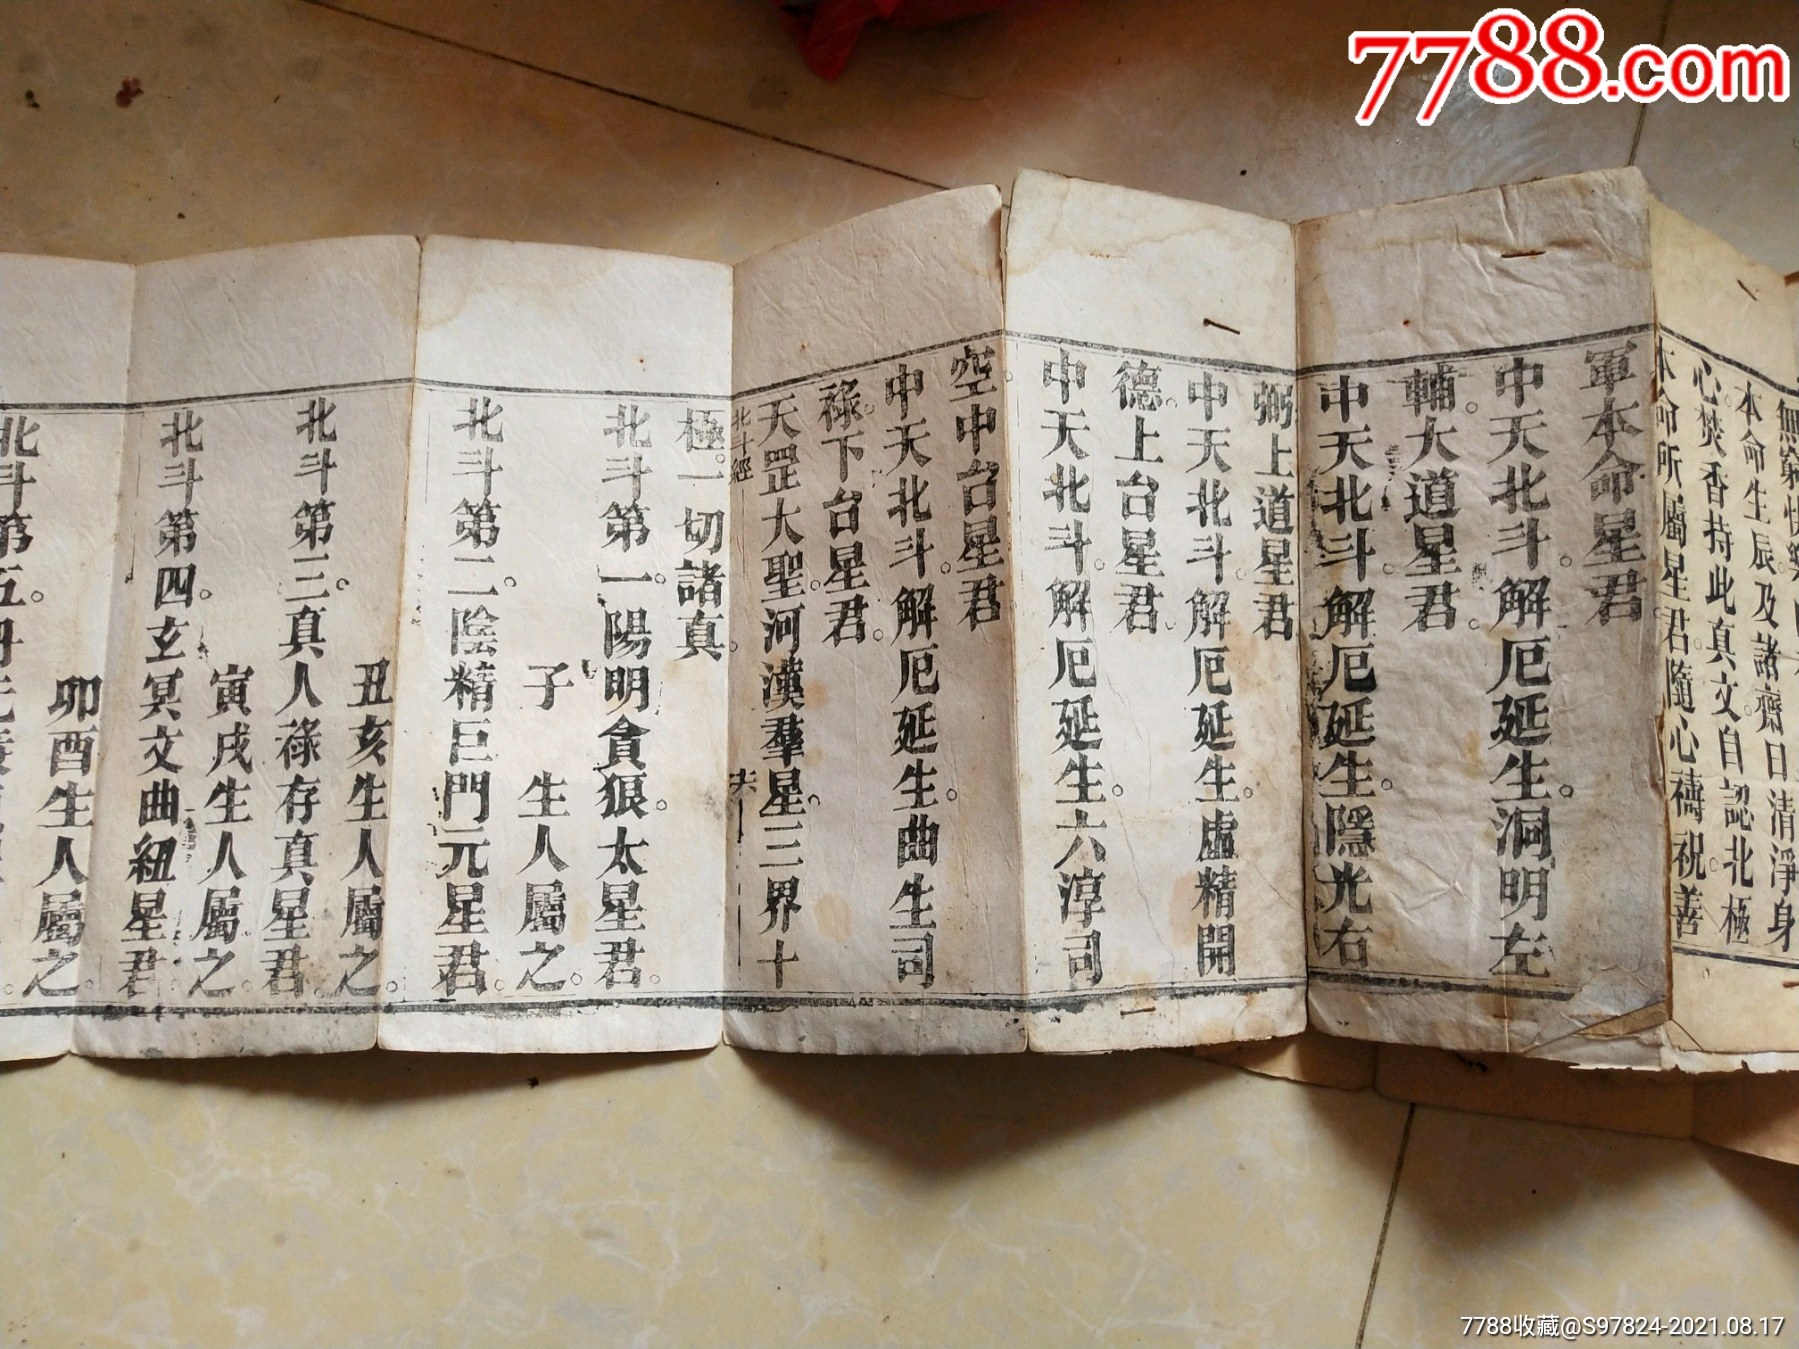 7788.com
無窮快樂
本命生辰及諸齋日清淨身
心。焚香持此真文。自認北極
本命所屬星君。隨心禱祝。善
軍本命星君
中天北斗。解厄延生。洞明左
輔大道星君。
中天北斗。解厄延生。隱光右
弼上道星君
中天北斗。解厄延生。虛精開
德上台星君。
中天北斗解厄延生。六淳司
空中台星君
中天北斗。解厄延生。曲生司
祿下台星君。
天罡大聖。河漢羣星。三界十
北斗經 夫
極。一切諸真。
北斗第一陽明貪狼。太星君。
子 生人屬之。
北斗第二。陰精巨門元星君。
丑亥生人屬之。
北斗第三。真人祿存真星君。
寅戌生人屬之。
北斗第四。玄冥文曲紐星君。
卯酉生人屬之。
北斗第五。丹元
7788收藏@S97824-2021.08.17